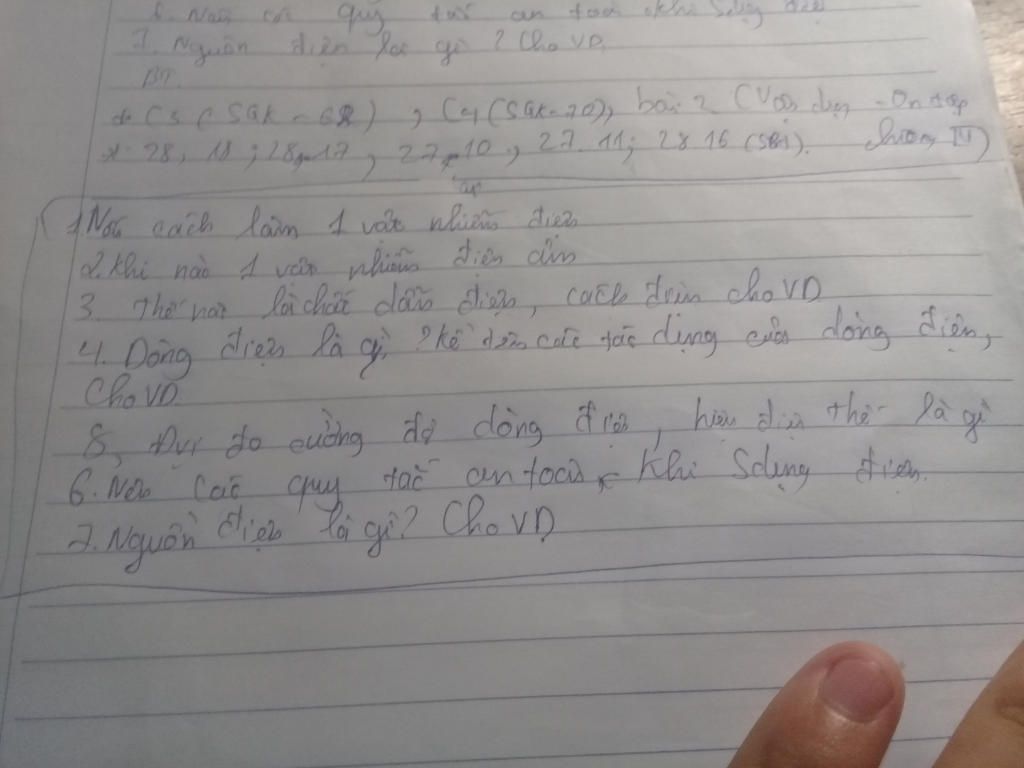 6. Nêu các quy tắc an toàn khi sdụng điện
7. Nguồn điện là gì? Cho VD.
BT.
* C3 (SGK - 68), C4 (SGK-70), bài 2 (Vận dụng - Ôn tập
*. 28, 18; 28, 17, 27, 10, 27. 11; 28 16 (SBT). chương IV)
1 Nêu cách làm 1 vật nhiễm điện
2. Khi nào 1 vật nhiễm điện âm
3. Thế nào là chất dẫn điện, cách điện cho VD
4. Dòng điện là gì? kể tên các tác dụng của dòng điện,
Cho VD
5, Đvị đo cường độ dòng điện, hiệu điện thế là gì
6. Nêu các quy tắc an toàn khi Sdụng điện.
7. Nguồn điện là gì? Cho VD